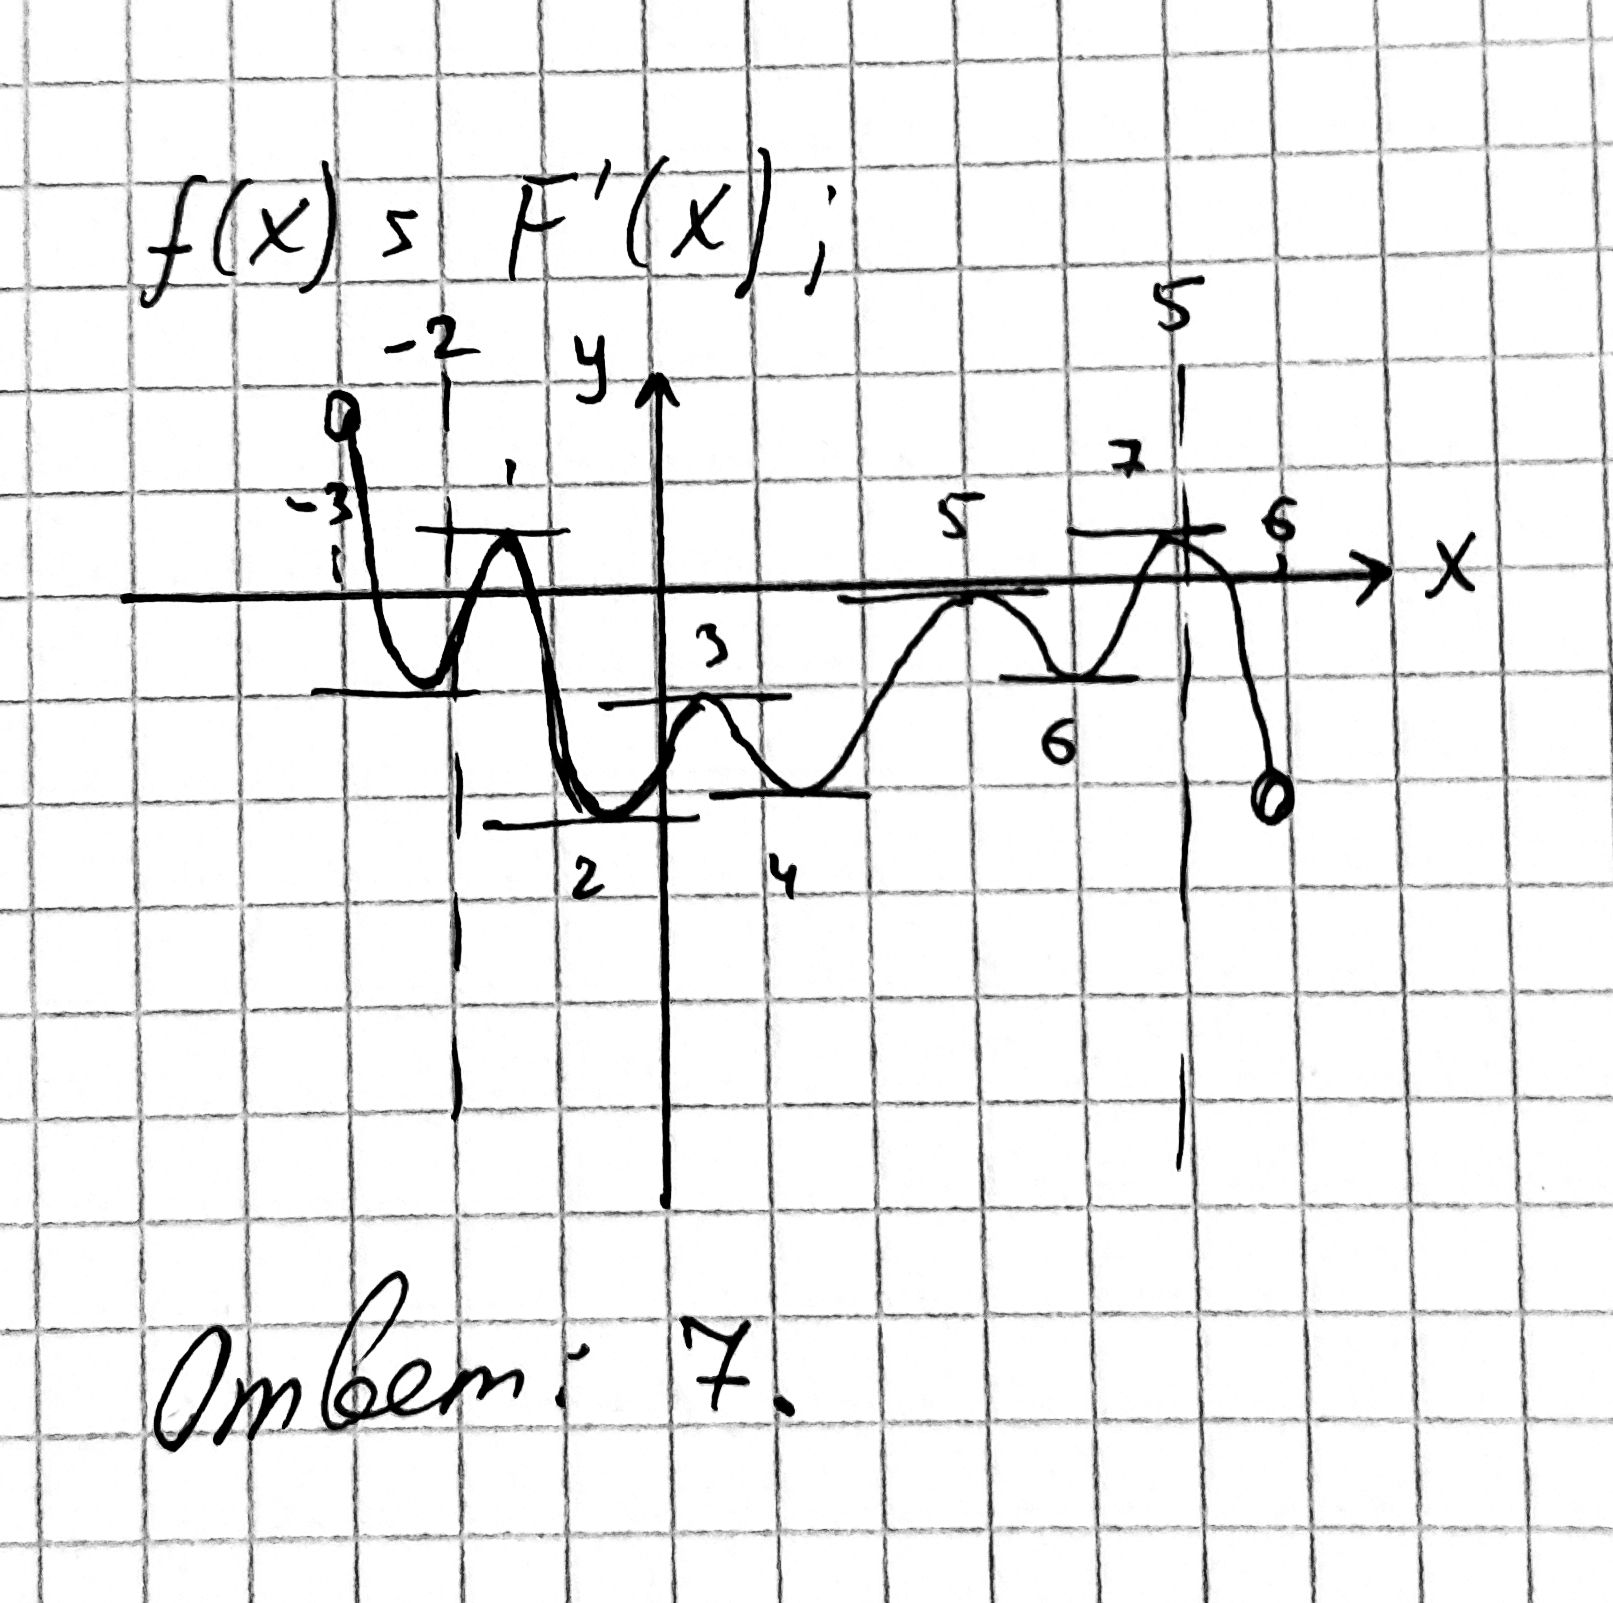 f(x) = F'(x);
-2 y 5
-3 1 5 7 6
x
3
6
2 4
Ответ: 7.